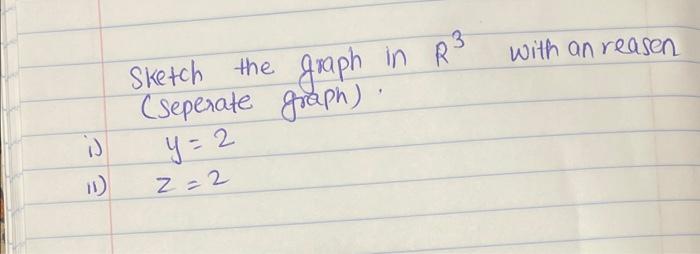 Sketch the graph in R³ with an reasen
(seperate graph).
i) y = 2
ii) z = 2